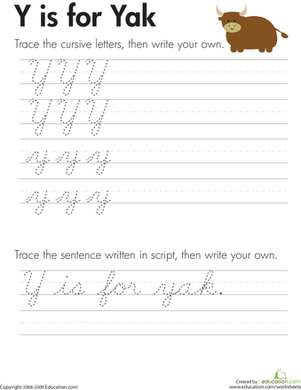 Y is for Yak
Trace the cursive letters, then write your own.
Y Y Y
Y Y Y
y y y
y y y
Trace the sentence written in script, then write your own.
Y is for yak.
Copyright 2008-2009 Education.com
Created by: education.com
www.education.com/worksheets